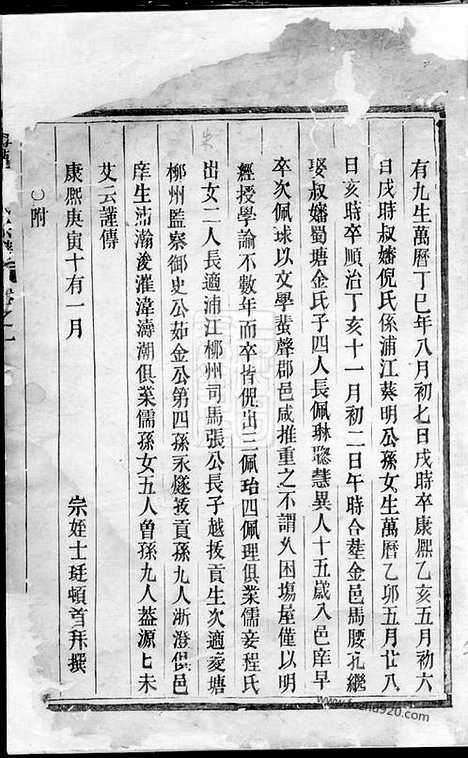 有九生萬曆丁巳年八月初七日戌時卒康熙乙亥五月初六
日戌時叔嬸倪氏係浦江葵明公孫女生萬曆乙卯五月廿八
日亥時卒順治丁亥十一月初二日午時合塟金邑馬腰孔繼
娶叔嬸蜀塘金氏子四人長佩琳聰慧異人十五歲入邑庠早
卒次佩球以文學蜚聲郡邑咸推重之不謂久困塲屋僅以明
經授學諭不數年而卒皆倪出三佩珆四佩理俱業儒妾程氏
出女二人長適浦江柳州司馬張公長子越拔貢生次適菱塘
柳州監察御史公茹金公第四孫永燧拔貢孫九人浙澄俱邑
庠生沛瀚浚漼湋濤潮俱業儒孫女五人曾孫九人葢源已未
艾云謹傳
康熙庚寅十有一月
宗姪士珽頓首拜撰
○附
www.fozhu920.com